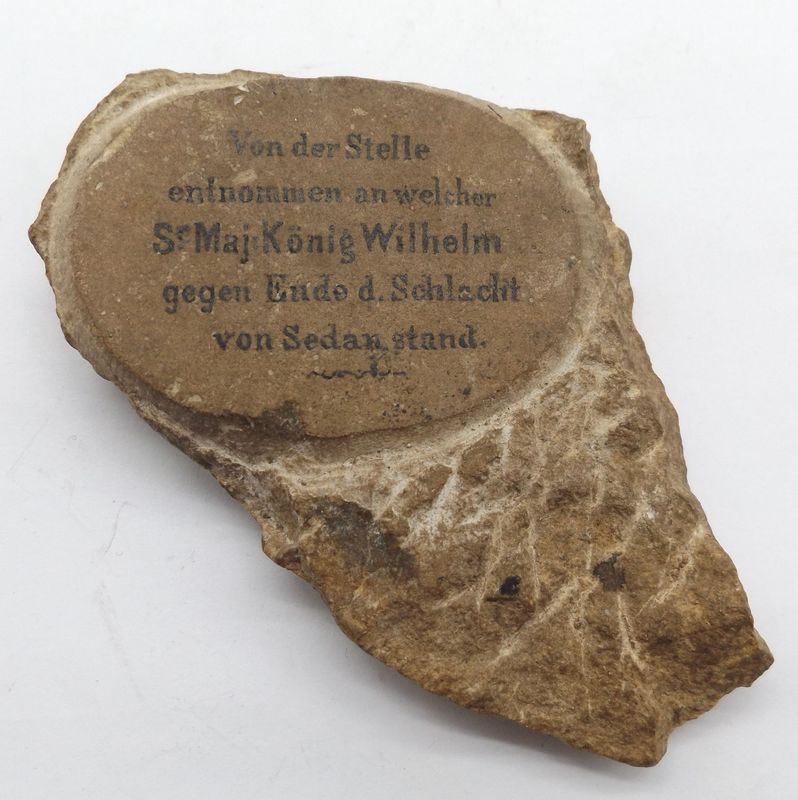 Von der Stelle
entnommen an welcher
Sr Maj: König Wilhelm
gegen Ende d. Schlacht
von Sedan stand.